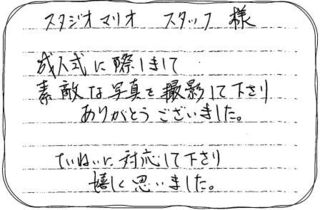 スタジオマリオ　スタッフ　様
成人式に際しまして
素敵な写真を撮影して下さり
ありがとうございました。
ていねいに対応して下さり
嬉しく思いました。